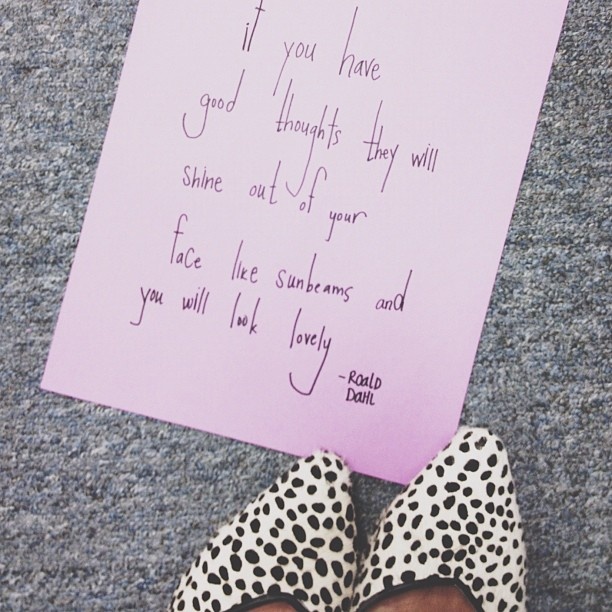 if you have
good thoughts they will
shine out of your
face like sunbeams and
you will look lovely
-ROALD
DAHL